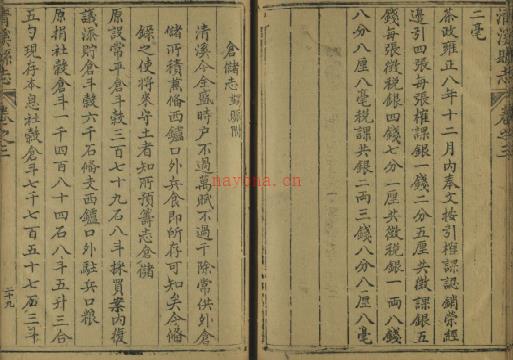 清溪縣志
二毫
茶政雍正八年十二月內奉文按引榷課認銷滎經
邊引四張每張榷課銀一錢二分五厘共徵課銀五
錢每張徵稅銀四錢七分一厘共徵稅銀一兩八錢
八分八厘八毫稅課共銀二兩三錢八分八厘八毫
倉儲志 蠲賑附
清溪今全盛時户不過萬賦不過千除常供外倉
儲所積舊俻西鑪口外兵食即所存可知矣今俻
錄之使將來守土者知所預籌志倉儲
原設常平倉斗穀三百七十九石八斗採買案內復
議添貯倉斗穀六千石俻支西鑪口外駐兵口粮
原捐社穀倉斗一千四百八十四石八斗五升三合
五勺現存本息社穀倉斗七千七百五十七石三斗
清溪縣志
卷之二
二十九
nayona.cn